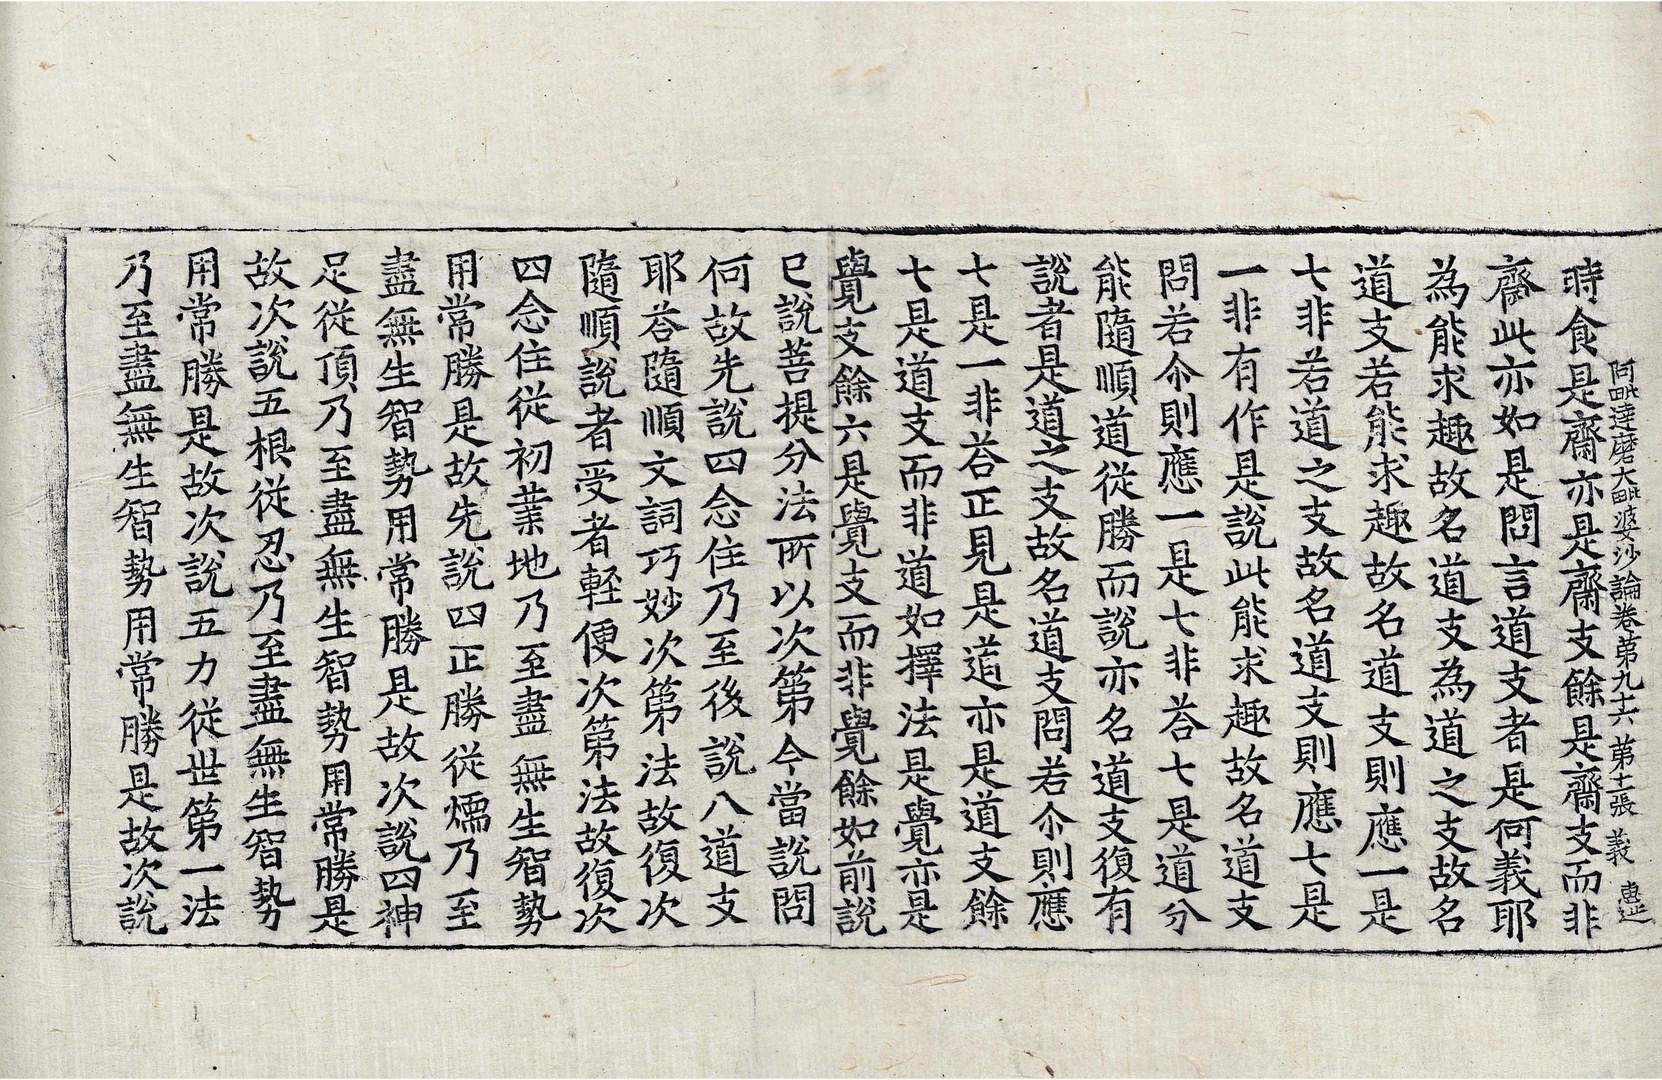 阿毗達磨大毗婆沙論卷第九十六 第十二張 義
時食是齋亦是齋支餘是齋支而非
齋此亦如是問言道支者是何義耶
為能求趣故名道支為道之支故名
道支若能求趣故名道支則應一是
七非若道之支故名道支則應七是
一非有作是說此能求趣故名道支
問若尒則應一是七非荅七是道分
能隨順道從勝而說亦名道支復有
說者是道之支故名道支問若尒則應
七是一非荅正見是道亦是道支餘
七是道支而非道如擇法是覺亦是
覺支餘六是覺支而非覺餘如前說
已說菩提分法所以次第今當說問
何故先說四念住乃至後說八道支
耶荅隨順文詞巧妙次第法故復次
隨順說者受者輕便次第法故復次
四念住從初業地乃至盡無生智勢
用常勝是故先說四正勝從煗乃至
盡無生智勢用常勝是故次說四神
足從頂乃至盡無生智勢用常勝是
故次說五根從忍乃至盡無生智勢
用常勝是故次說五力從世第一法
乃至盡無生智勢用常勝是故次說